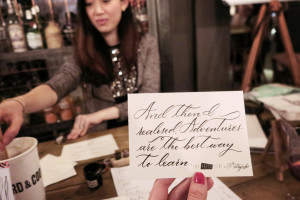 And then I
realised, Adventures
are the best way
to learn
RD & CO